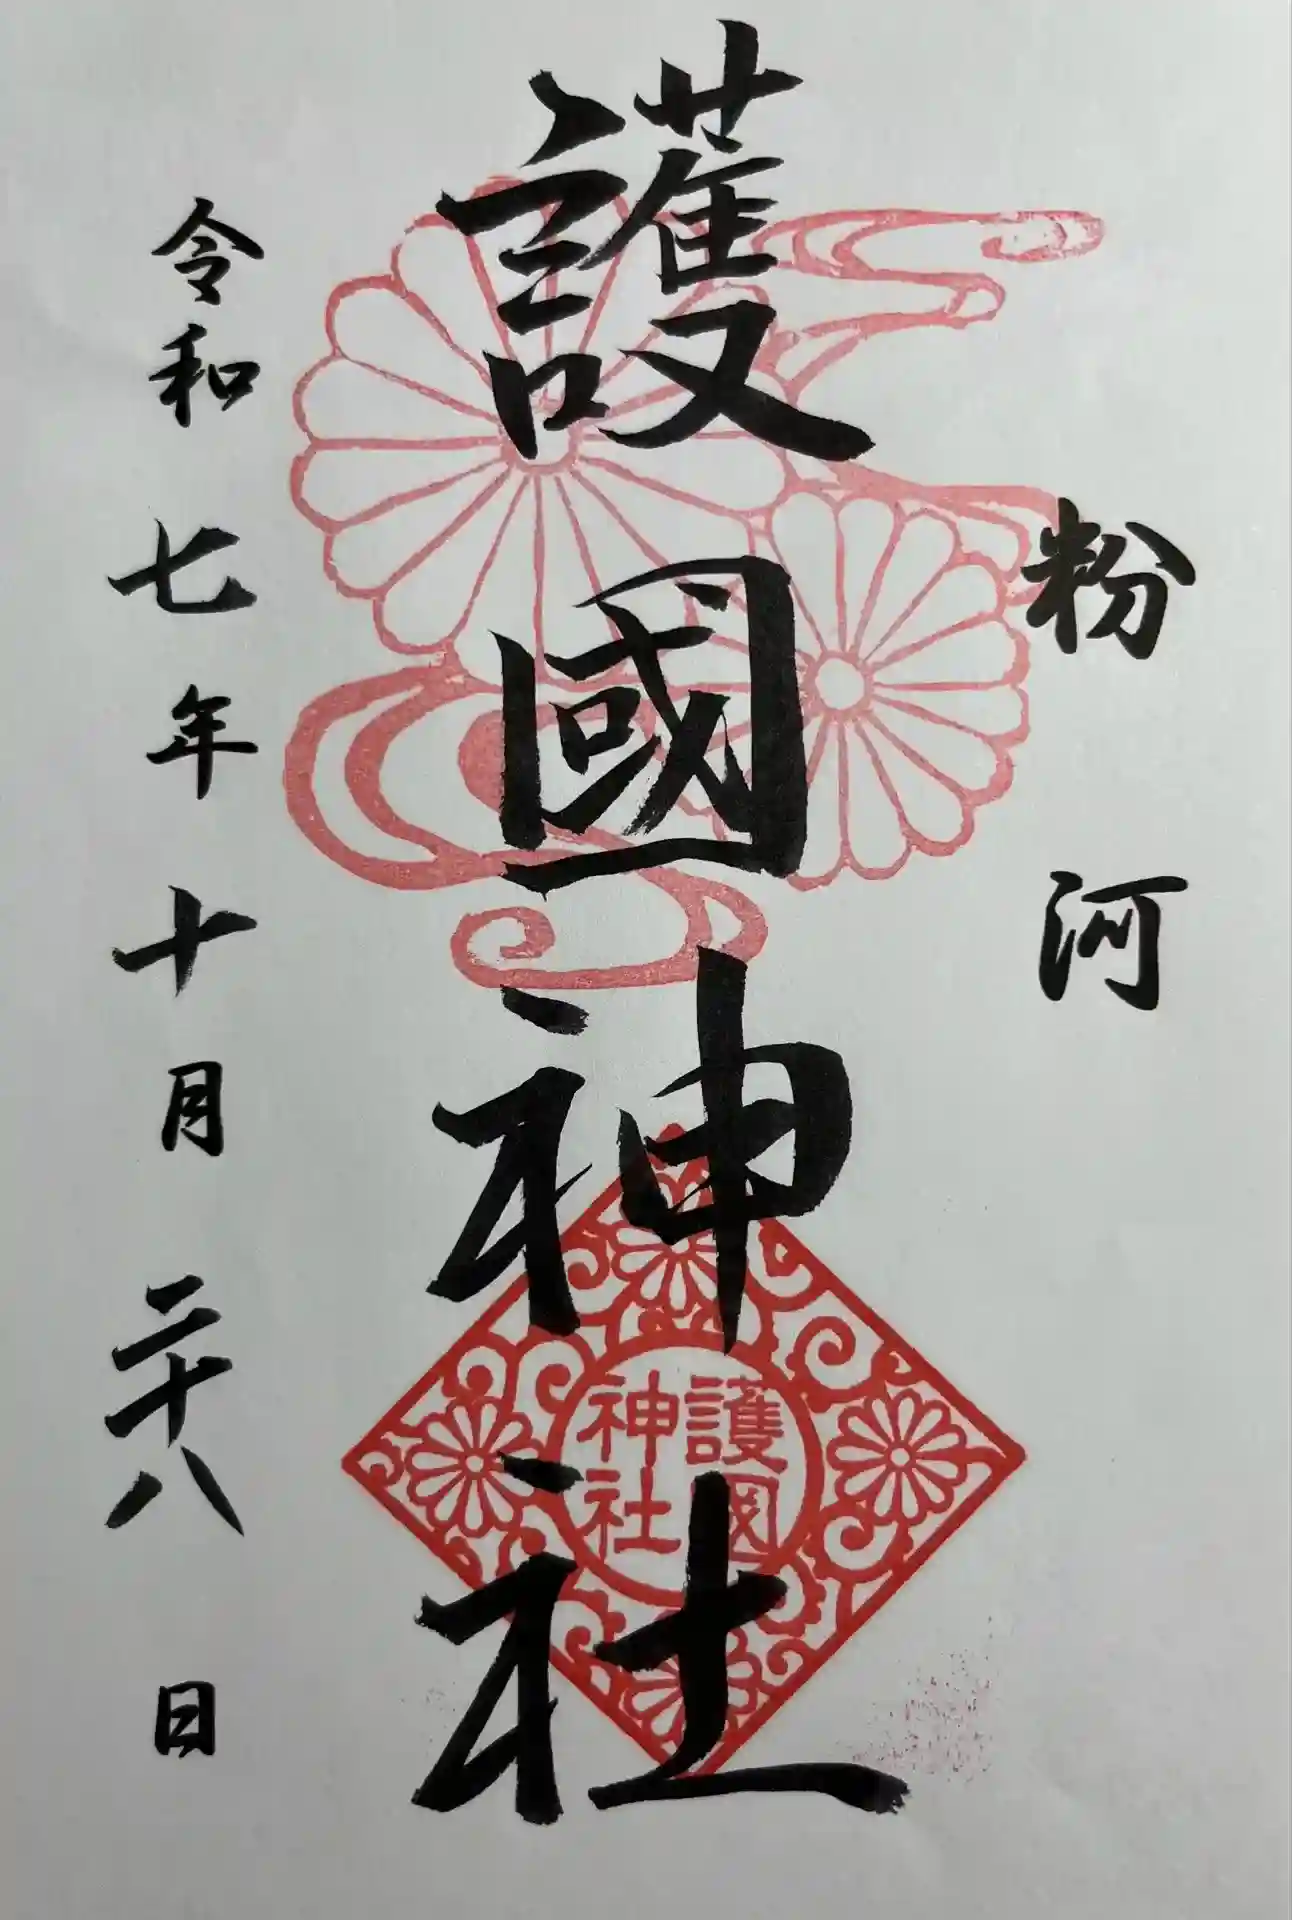 粉河
護國神社
護國
神社
令和七年十月二十八日